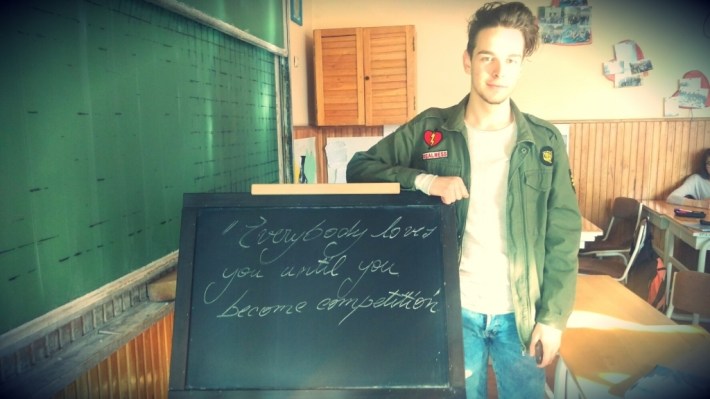 "Everybody loves
you until you
become competition